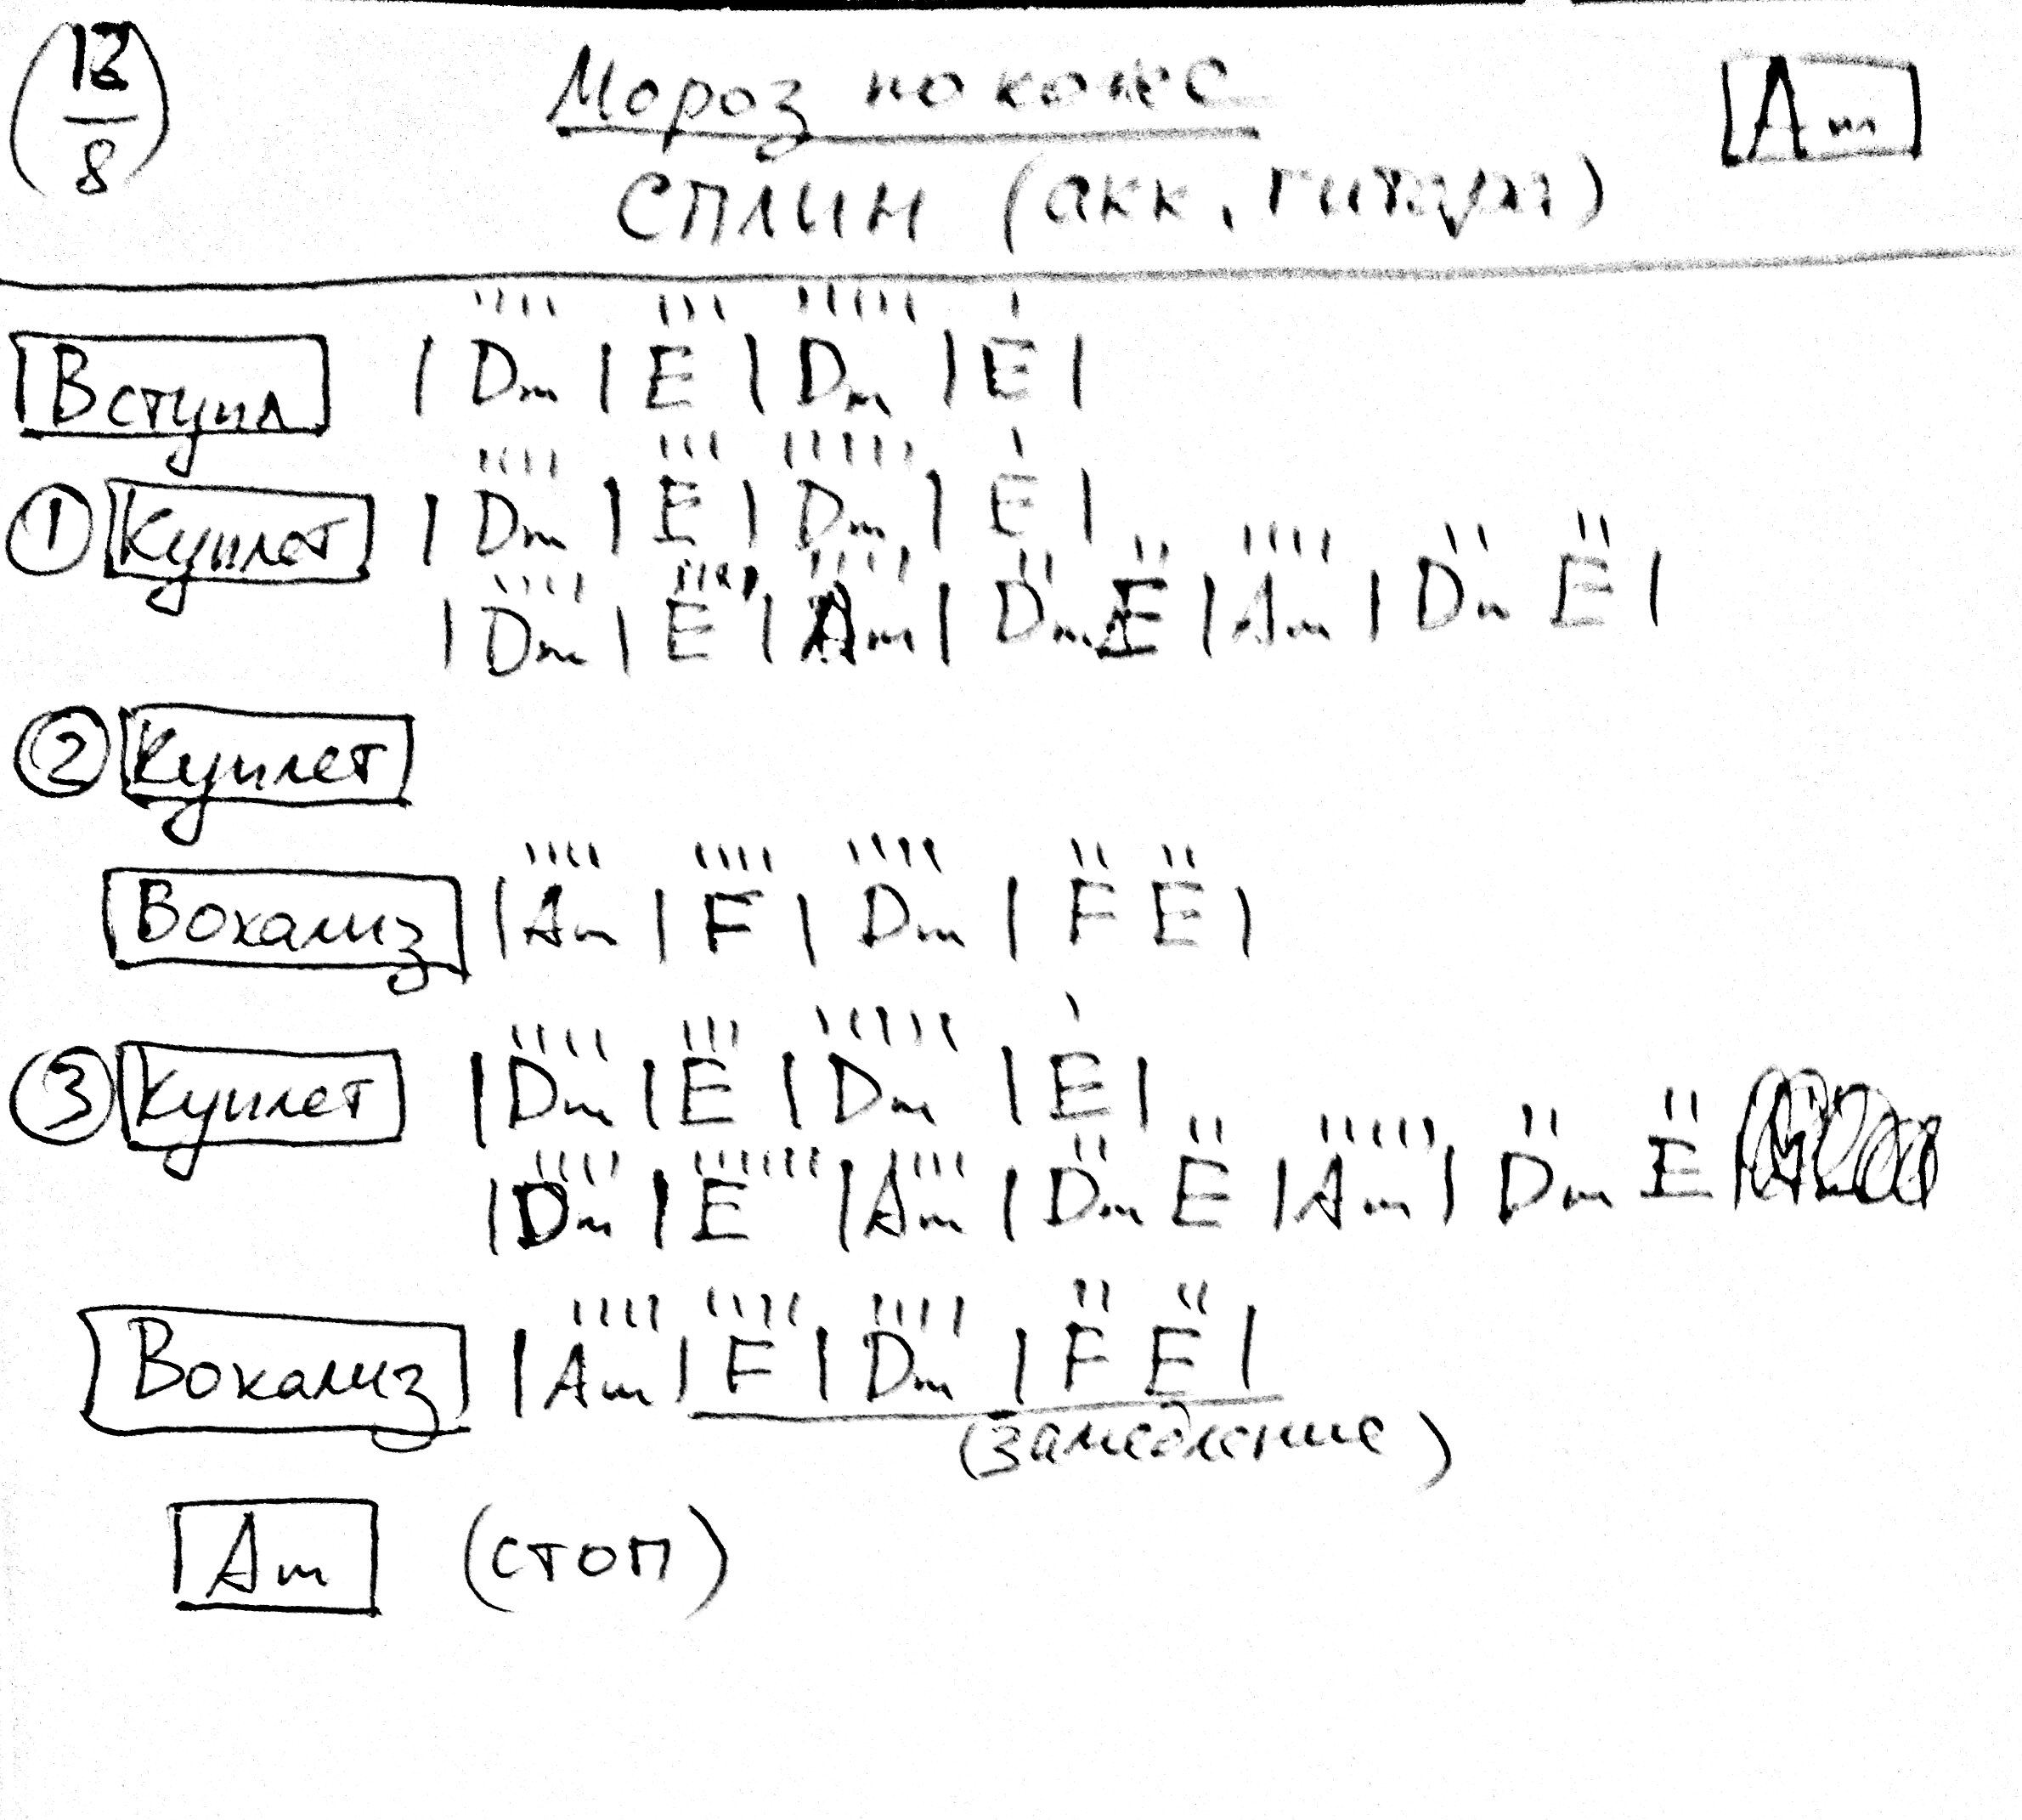 (12/8) Мороз по коже Am
СПЛИН (акк. гитара)
Вступл | Dm | E | Dm | E |
① Куплет | Dm | E | Dm | E |
| Dm | E | Am | Dm E | Am | Dm E |
② Куплет
Вокализ | Am | F | Dm | F E |
③ Куплет | Dm | E | Dm | E |
| Dm | E | Am | Dm E | Am | Dm E |
Вокализ | Am | F | Dm | F E |
(замедление)
Am (стоп)